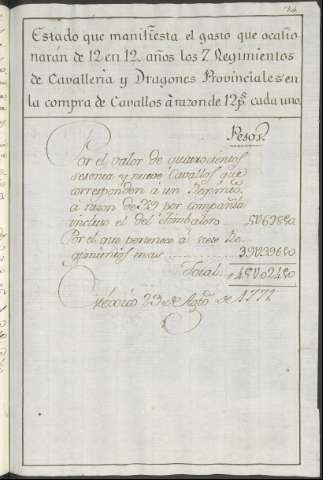 Estado que manifiesta el gasto que ocasio
narán de 12 en 12. años los 7. Regimientos
de Cavalleria y Dragones Provinciales en
la compra de Cavallos à razon de 12ps. cada uno.
Pesos.
Por el valor de quatrocientos
sesenta y nueve Cavallos que
corresponden à un Regimto.
à razon de 39 por Compañia
incluso el del timbalero .. 5U628.0
Por el que pertenece à siete Re
gimientos mas .......... 39U396.0
Total .. 45U024.0
Mexico 23 de Agto. de 1772